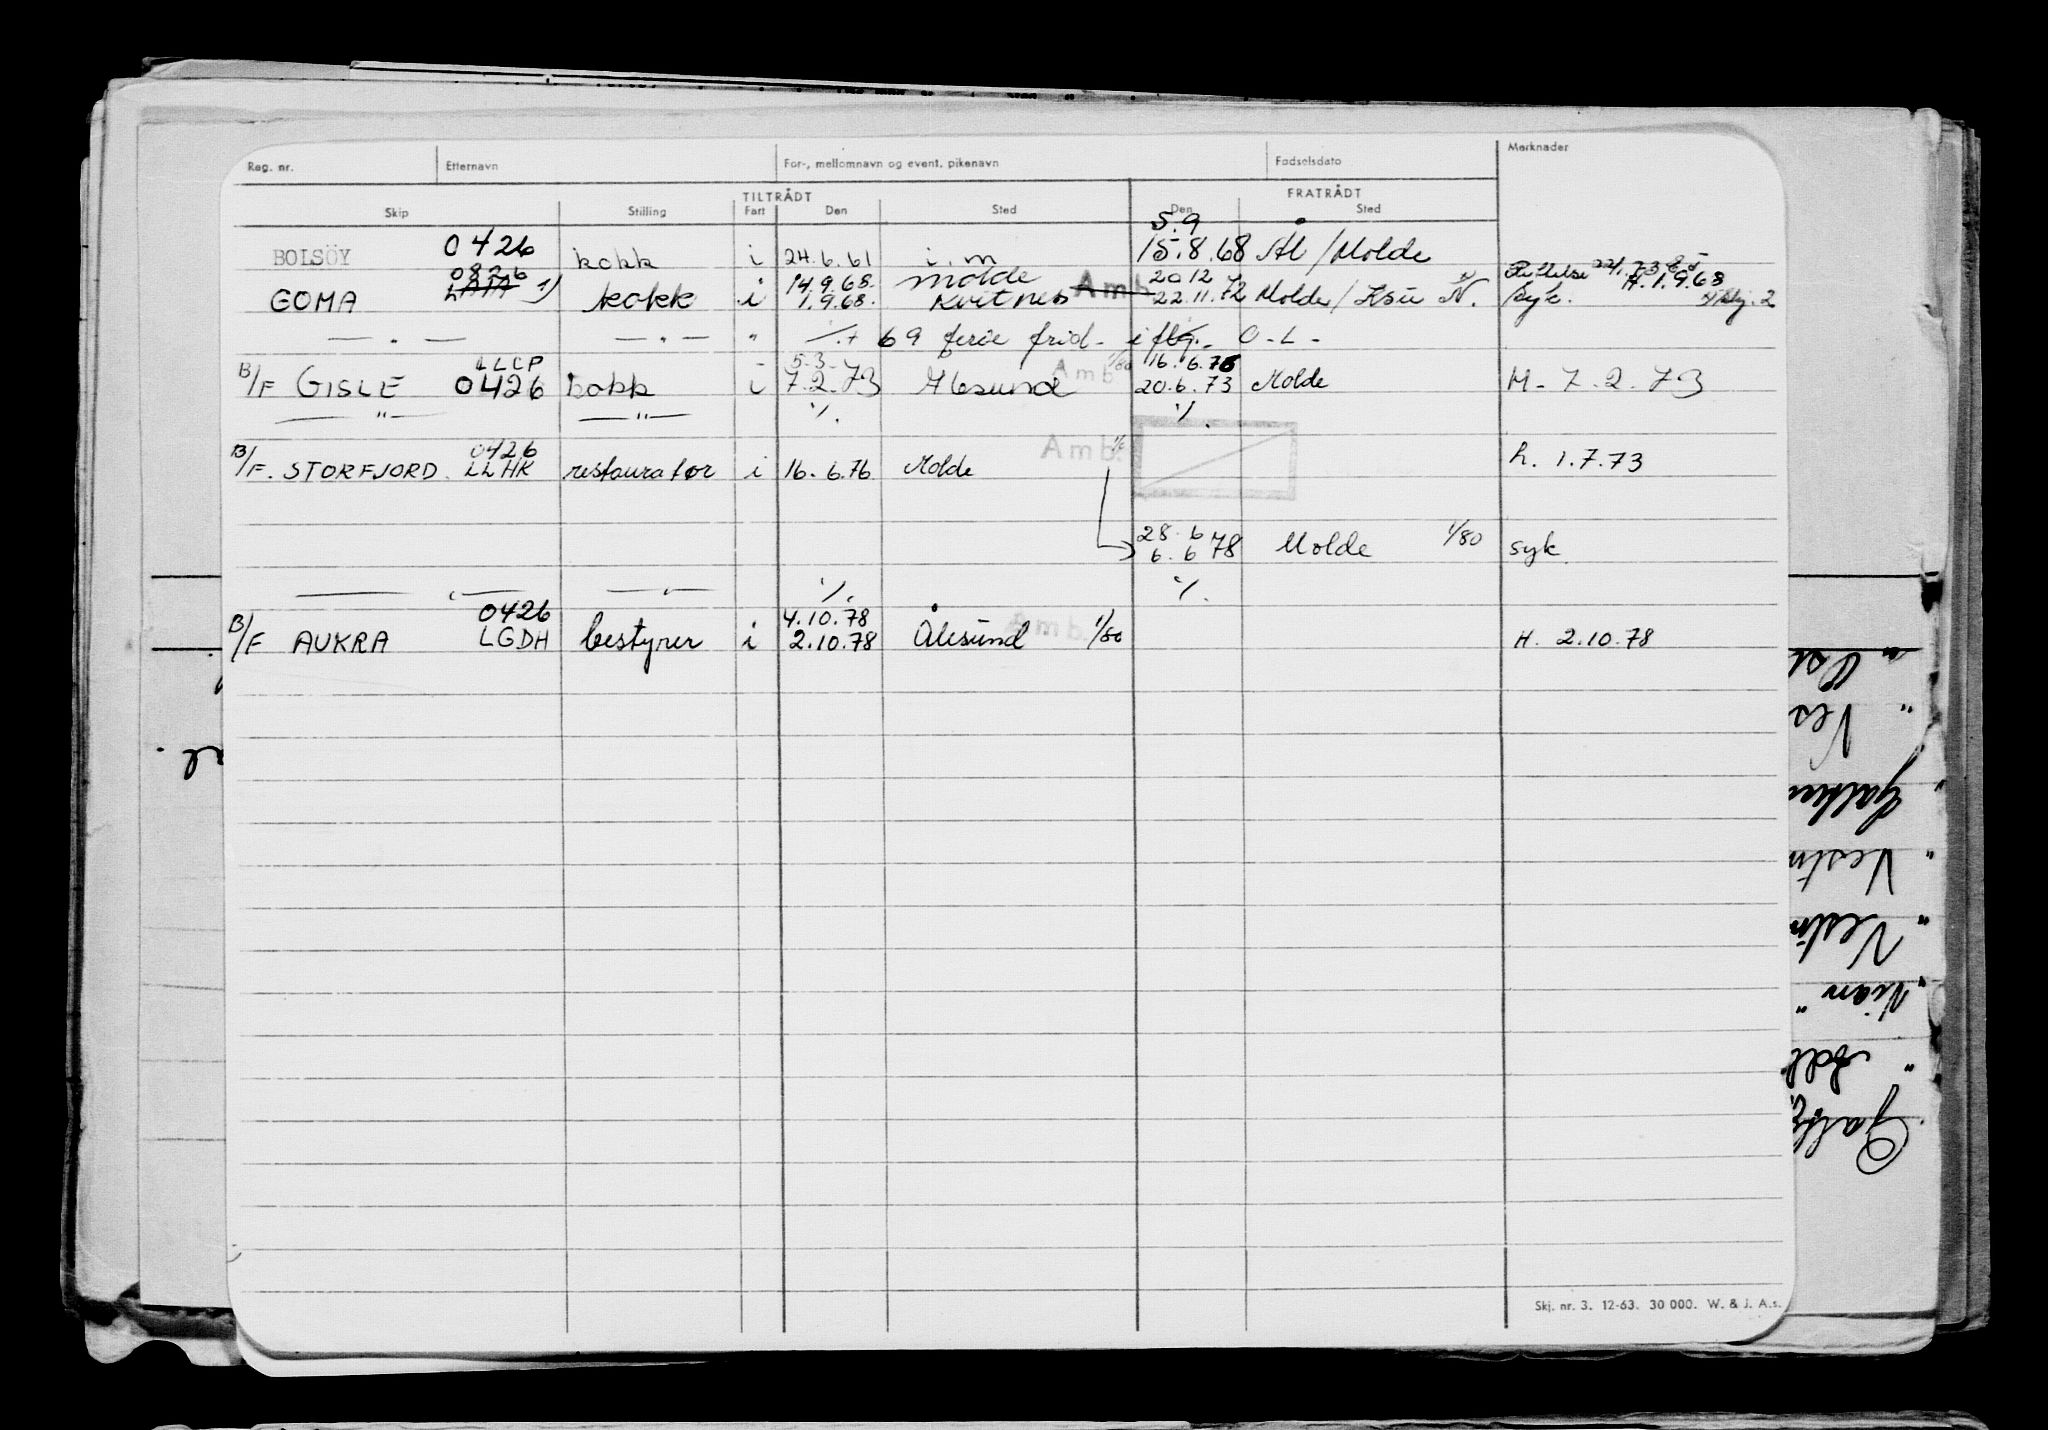 Reg. nr. Etternavn For-, mellomnavn og event. pikenavn Fødselsdato Merknader
TILTRÅDT FRATRÅDT
Skip Stilling Fart Den Sted Den Sted
5.9
BOLSÖY 0426 kokk i 24.6.61 i.m 15.8.68 Ål/Molde
0826 14.9.68. Molde 20 12 Rettelse
GOMA 1) kokk i 1.9.68. Kvitnes Amb 22.11.72 Molde/Ksu N. syk. H.1.9.68 skj. 2
— " — — " — " 69 ferie frid- i flg. O-L-
LLCP 5.3 1/80 16.6.76
B/F GISLE 0426 kokk i 7.2.73 Ålesund Amb 20.6.73 Molde M- 7.2.73
— " — — " — ./. ./.
0426 Amb.
B/F. STORFJORD. LLHK restauratør i 16.6.76 Molde h. 1.7.73
28.6
6.6 78 Molde 1/80 syk.
— " — — " — ./. ./.
0426 4.10.78
B/F AUKRA LGDH bestyrer i 2.10.78 Ålesund Amb. 1/80 H. 2.10.78
Skj. nr. 3. 12-63. 30 000. W. & J. A.s.